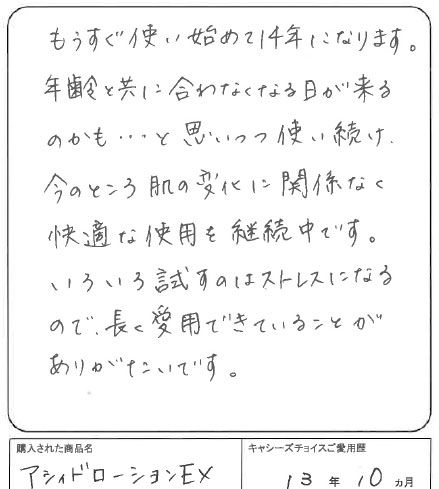 もうすぐ使い始めて14年になります。
年齢と共に合わなくなる日が来る
のかも・・・と思いつつ使い続け、
今のところ肌の変化に関係なく
快適な使用を継続中です。
いろいろ試すのはストレスになる
ので、長く愛用できていることが
ありがたいです。
購入された商品名
アシィドローションEX
キャシーズチョイスご愛用歴
13年10ヵ月